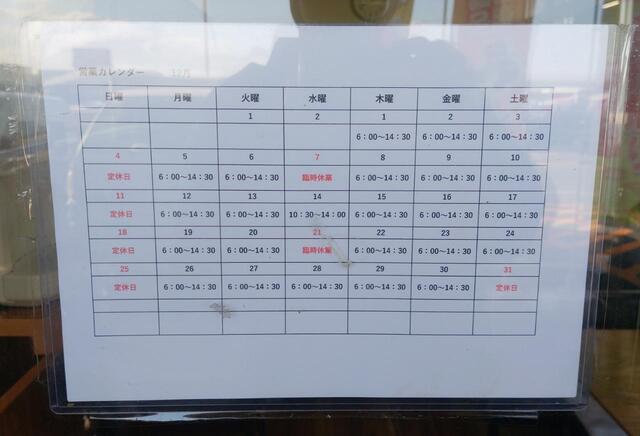 営業カレンダー 12月
日曜 月曜 火曜 水曜 木曜 金曜 土曜
1 2 1 2 3
6:00～14:30 6:00～14:30 6:00～14:30
4 5 6 7 8 9 10
定休日 6:00～14:30 6:00～14:30 臨時休業 6:00～14:30 6:00～14:30 6:00～14:30
11 12 13 14 15 16 17
定休日 6:00～14:30 6:00～14:30 10:30～14:00 6:00～14:30 6:00～14:30 6:00～14:30
18 19 20 21 22 23 24
定休日 6:00～14:30 6:00～14:30 臨時休業 6:00～14:30 6:00～14:30 6:00～14:30
25 26 27 28 29 30 31
定休日 6:00～14:30 6:00～14:30 6:00～14:30 6:00～14:30 6:00～14:30 定休日